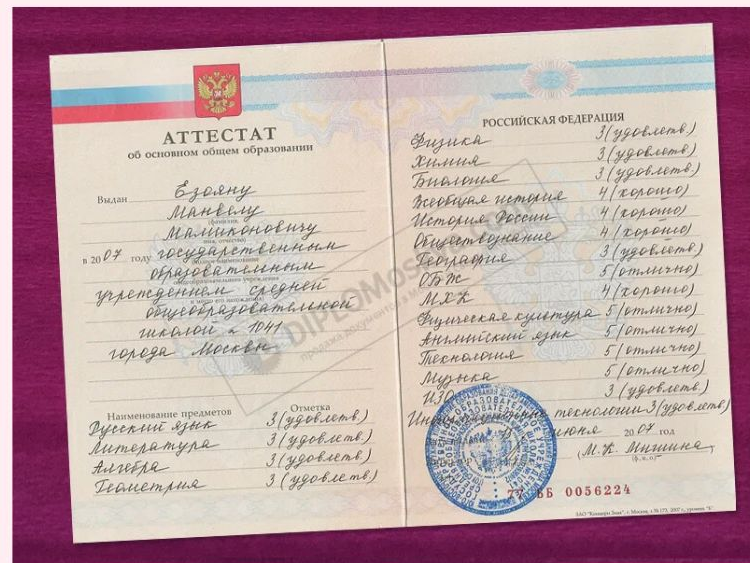 АТТЕСТАТ
об основном общем образовании
Выдан Езояну
(фамилия,
Манвелу
имя, отчество)
Мамиконовичу
в 2007 году государственным
образовательным
учреждением средней
общеобразовательной
школой № 1041
города Москвы
Наименование предметов Отметка
Русский язык 3 (удовлетв.)
Литература 3 (удовлетв.)
Алгебра 3 (удовлетв.)
Геометрия 3 (удовлетв.)
РОССИЙСКАЯ ФЕДЕРАЦИЯ
Физика 3 (удовлетв.)
Химия 3 (удовлетв.)
Биология 3 (удовлетв.)
Всеобщая история 4 (хорошо)
История России 4 (хорошо)
Обществознание 4 (хорошо)
География 3 (удовлетв.)
ОБЖ 5 (отлично)
МХК 4 (хорошо)
Физическая культура 5 (отлично)
Английский язык 5 (отлично)
Технология 5 (отлично)
Музыка 5 (отлично)
ИЗО 3 (удовлетв.)
технологии 3 (удовлетв.)
июня 2007 год
(М.К. Мишина)
(ф.и.о)
77 ББ 0056224